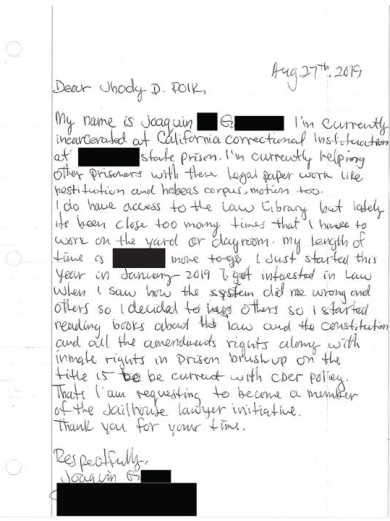 Aug. 27th, 2019
Dear Jhody D. POLK,
My name is Joaquin G I'm currently
incarcerated at California correctional Institution
at state prison. I'm currently helping
other prisoners with there legal paper work like
restitution and habeas corpus, motion too.
I do have access to the Law Library but lately
its been close too many times that I have to
work on the yard or dayroom. My length of
time is more to go I Just started this
year in January 2019 I got interested in Law
when I saw how the system did me wrong and
others so I decided to others so I started
reading books about the law and the constitution
and all the amendments rights along with
inmate rights in Prison brush up on the
title 15 to be current with cdcr policy.
Thats I am requesting to become a member
of the Jailhouse lawyer initiative.
Thank you for your time.
Respectfully,
Joaquin G